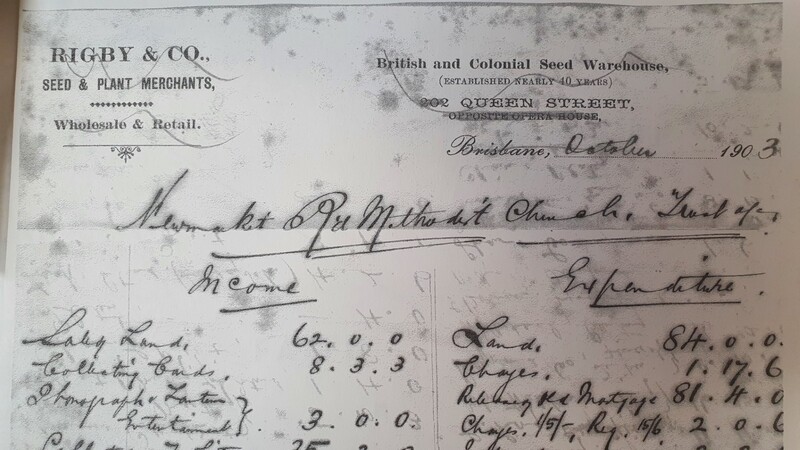 RIGBY & CO.,
SEED & PLANT MERCHANTS,
Wholesale & Retail.
British and Colonial Seed Warehouse,
(ESTABLISHED NEARLY 40 YEARS)
202 QUEEN STREET,
OPPOSITE OPERA HOUSE,
Brisbane, October 1903
Newmarket Rd Methodist Church, Trust
Income
Sale of Land. 62. 0. 0
Collecting Cards. 8. 3. 3
Phonograph & Lantern
Entertainment } 3. 0. 0.
25
Expenditure.
Land. 84. 0. 0.
Charges. 1. 17. 6
Releasing Rd Mortgage 81. 4. 0
Charges. 1/5/-, Reg. 15/6 2. 0. 6